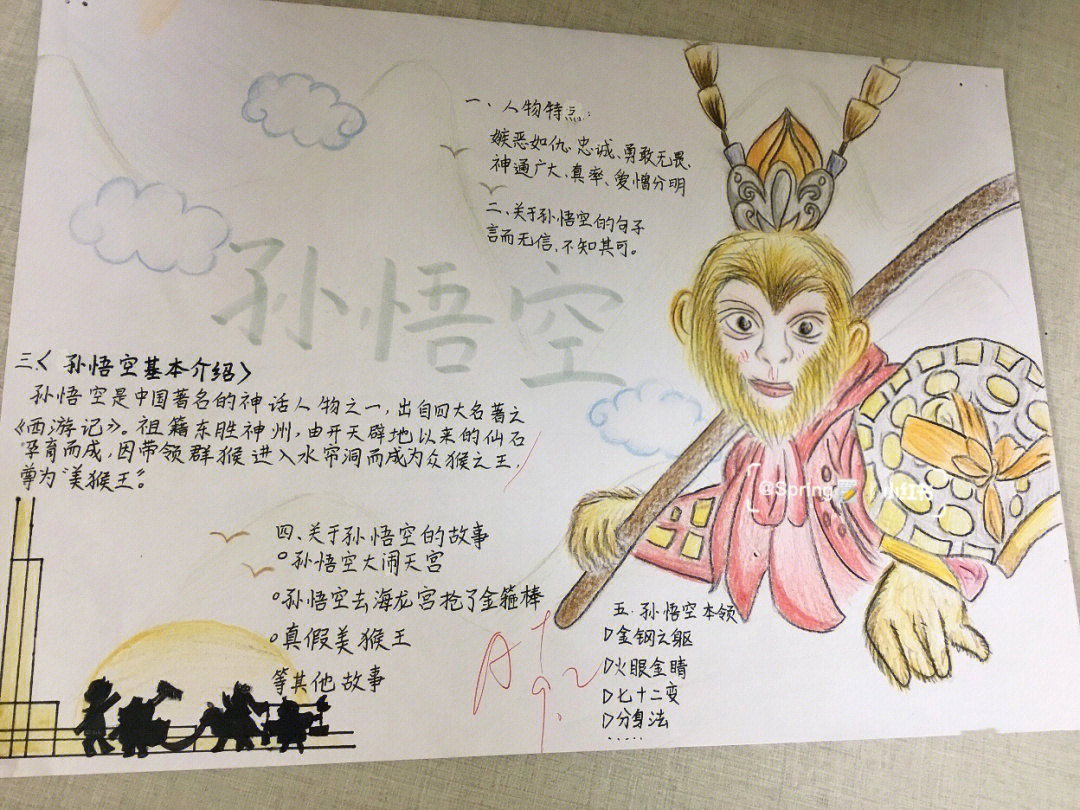 一、人物特点:
嫉恶如仇、忠诚、勇敢无畏、
神通广大、真率、爱憎分明
二、关于孙悟空的句子
言而无信、不知其可。
孙悟空
三《孙悟空基本介绍》
孙悟空是中国著名的神话人物之一，出自四大名著之
《西游记》。祖籍东胜神州，由开天辟地以来的仙石
孕育而成，因带领群猴进入水帘洞而成为众猴之王，
尊为“美猴王”。
四、关于孙悟空的故事
孙悟空大闹天宫
孙悟空去海龙宫抢了金箍棒
真假美猴王
等其他故事
五、孙悟空本领
金钢之躯
火眼金睛
七十二变
分身法
......
A+
9.2
@Spring
小红书